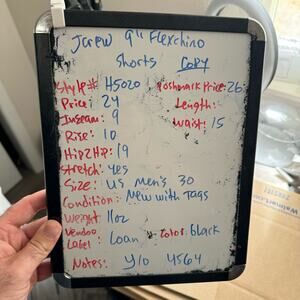 Jcrew 9" Flexchino
Shorts COPY
Style# H5020 Poshmark Price: 26
Price: 24 Length:
Inseam: 9 Waist: 15
Rise: 10
Hip2Hip: 19
Stretch: yes
Size: US Men's 30
Condition: New with Tags
Weight: 11oz
Vendoo
Label Loan Color: black
Notes: Y10 4564
Walmart.com